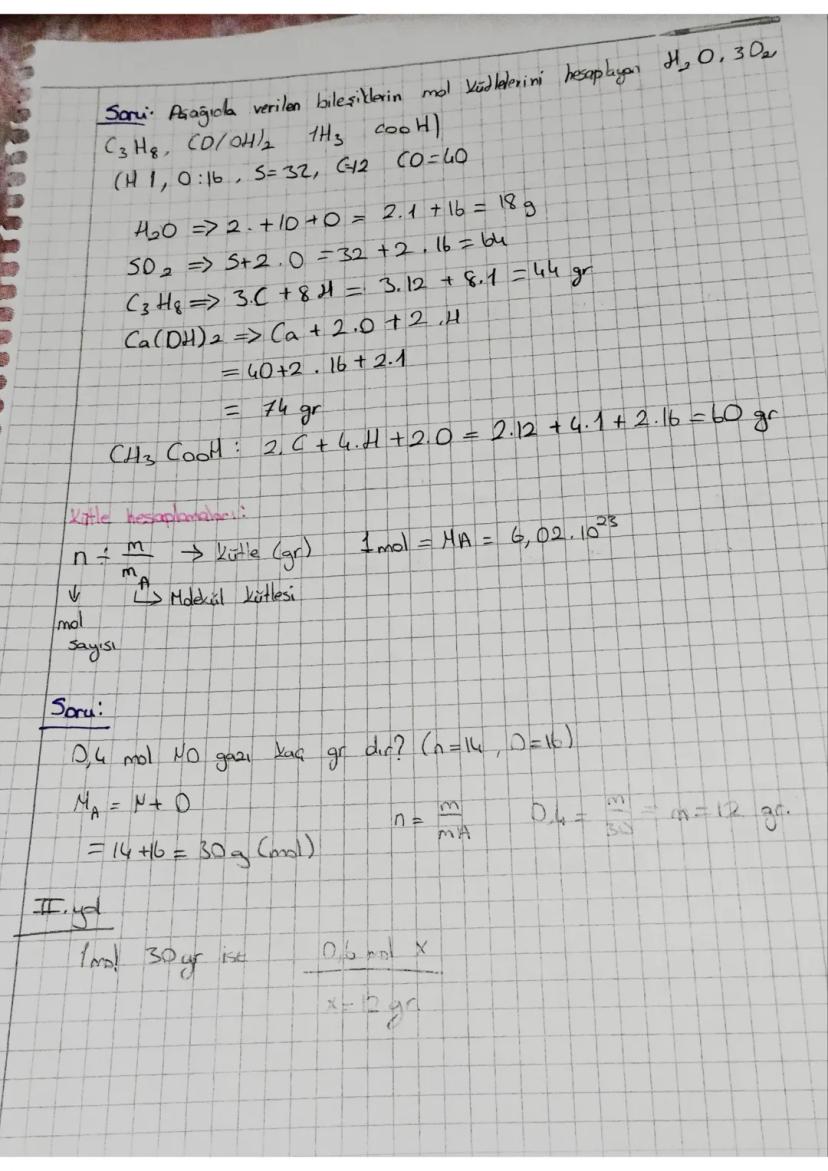 Soru: Aşağıda verilen bileşiklerin mol kütlelerini hesaplayan H₂O, 3O₂
C₃H₈, CO(OH)₂ 1H₃ COOH)
(H 1, O:16, S=32, C=12 CO=40
H₂O => 2. +10+0 = 2.1 +16 = 18 g
SO₂ => S+2.O =32 +2.16 =64
C₃H₈ => 3.C +8H = 3.12 + 8.1 =44 gr
Ca(OH)₂ => Ca + 2.O + 2.H
=40+2.16+2.1
= 74 gr
CH₃ COOH: 2.C + 4.H +2.O = 2.12 +4.1 + 2.16 =60 gr
Kütle hesaplamaları:
n = m/mA → Kütle (gr) 1 mol = MA = 6,02.10²³
↓ ↳ Molekül kütlesi
mol
sayısı
Soru:
0,4 mol NO gazı kaç gr dır? (n=14, O=16)
MA = N+O
n = m/mA 0,4 = m/30 = m=12 gr.
=14+16= 30 g (mol)
II. yol
1 mol 30 gr ise 0,6 mol x
x=12 gr